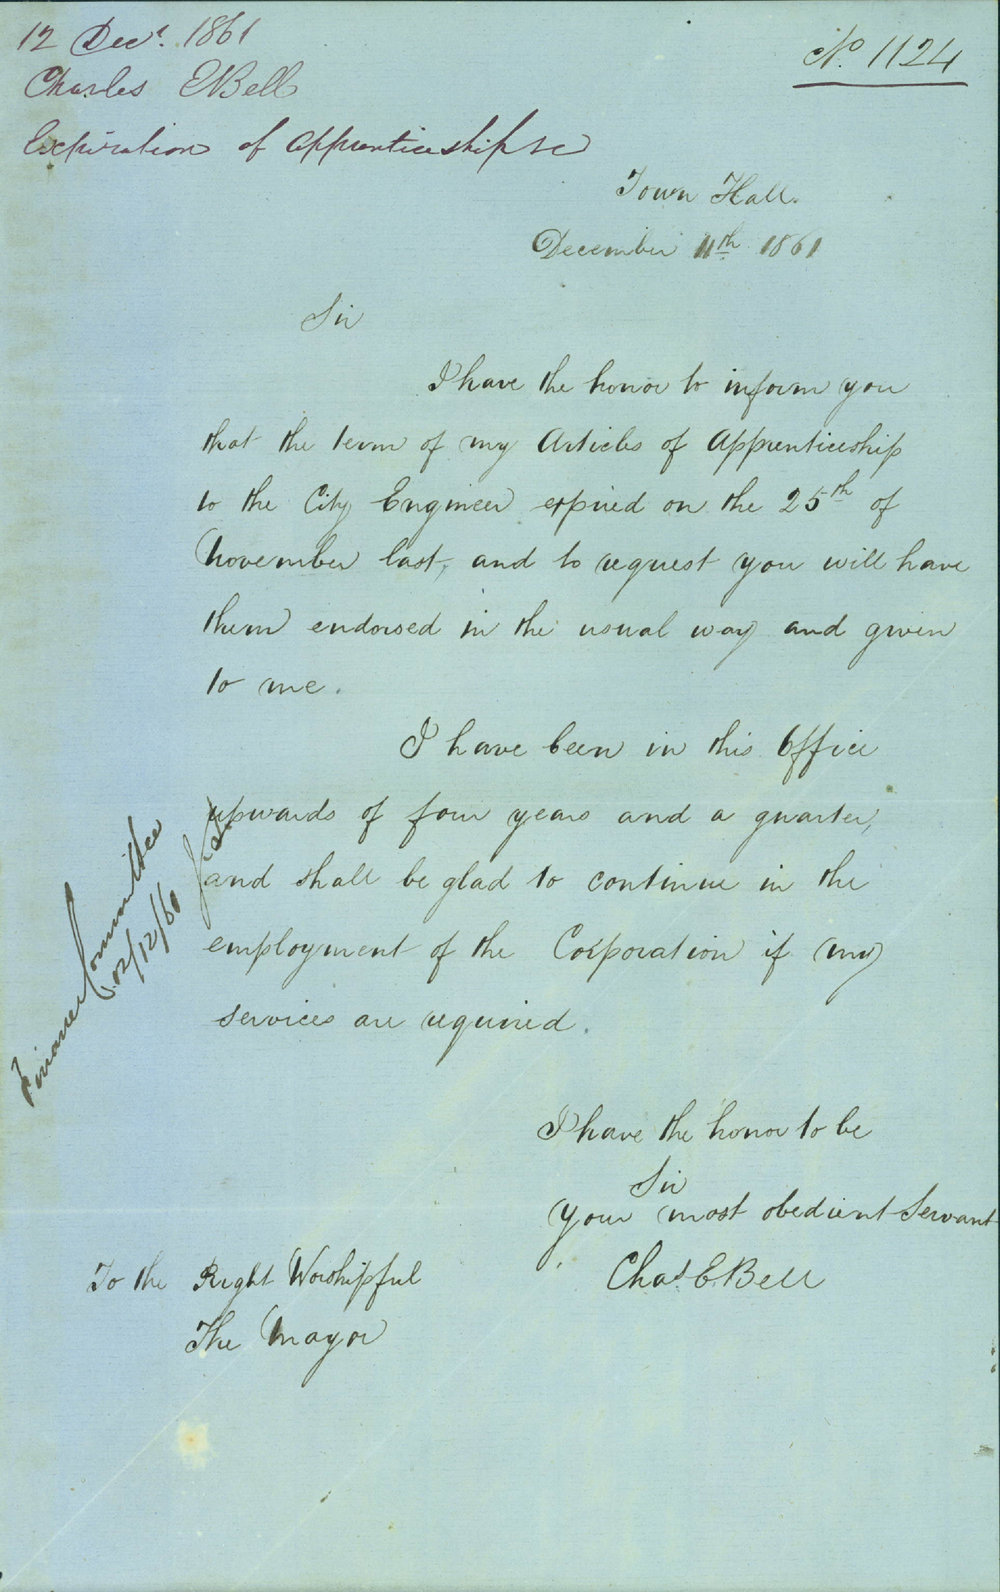 12 Decr. 1861
Charles E Bell
Expiration of apprenticeship &c
No. 1124
Town Hall.
December 11th 1861
Sir
I have the honor to inform you
that the term of my Articles of Apprenticeship
to the City Engineer expired on the 25th of
November last, and to request you will have
them endorsed in the usual way and given
to me.
I have been in this Office
upwards of four years and a quarter,
and shall be glad to continue in the
employment of the Corporation if my
services are required.
Finance Committee
I have the honor to be
Sir
Your most obedient Servant
Chas E. Bell
To the Right Worshipful
The Mayor